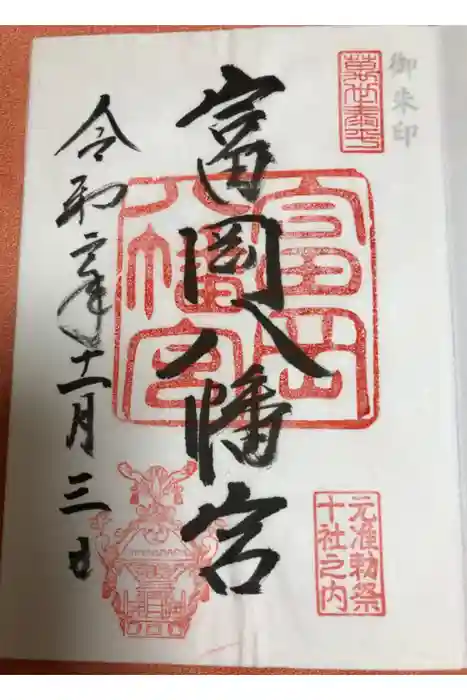 御朱印
萬世泰平
富岡八幡宮
富岡
八幡宮
元准勅祭
十社之内
令和二年十一月三日